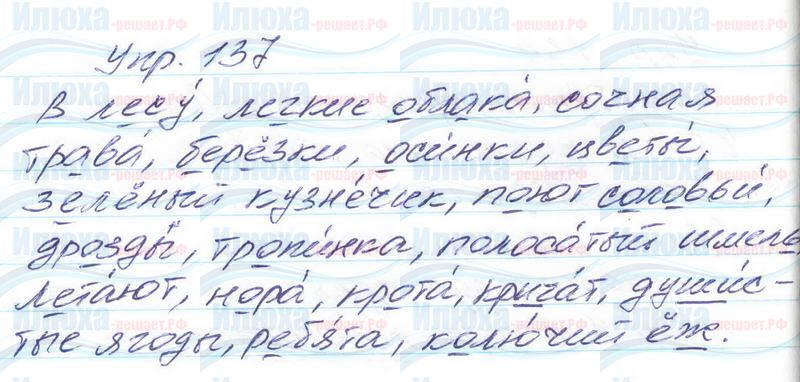 Упр. 137
В лесу́, легкие облака́, сочная
трава́, берёзки, оси́нки, цветы́,
зелёный кузне́чик, пою́т соловьи́,
дрозды́, тропи́нка, полоса́тый шмель,
лета́ют, нора́, крота́, крича́т, души́с-
тые ягоды, ребя́та, колю́чий ёж.